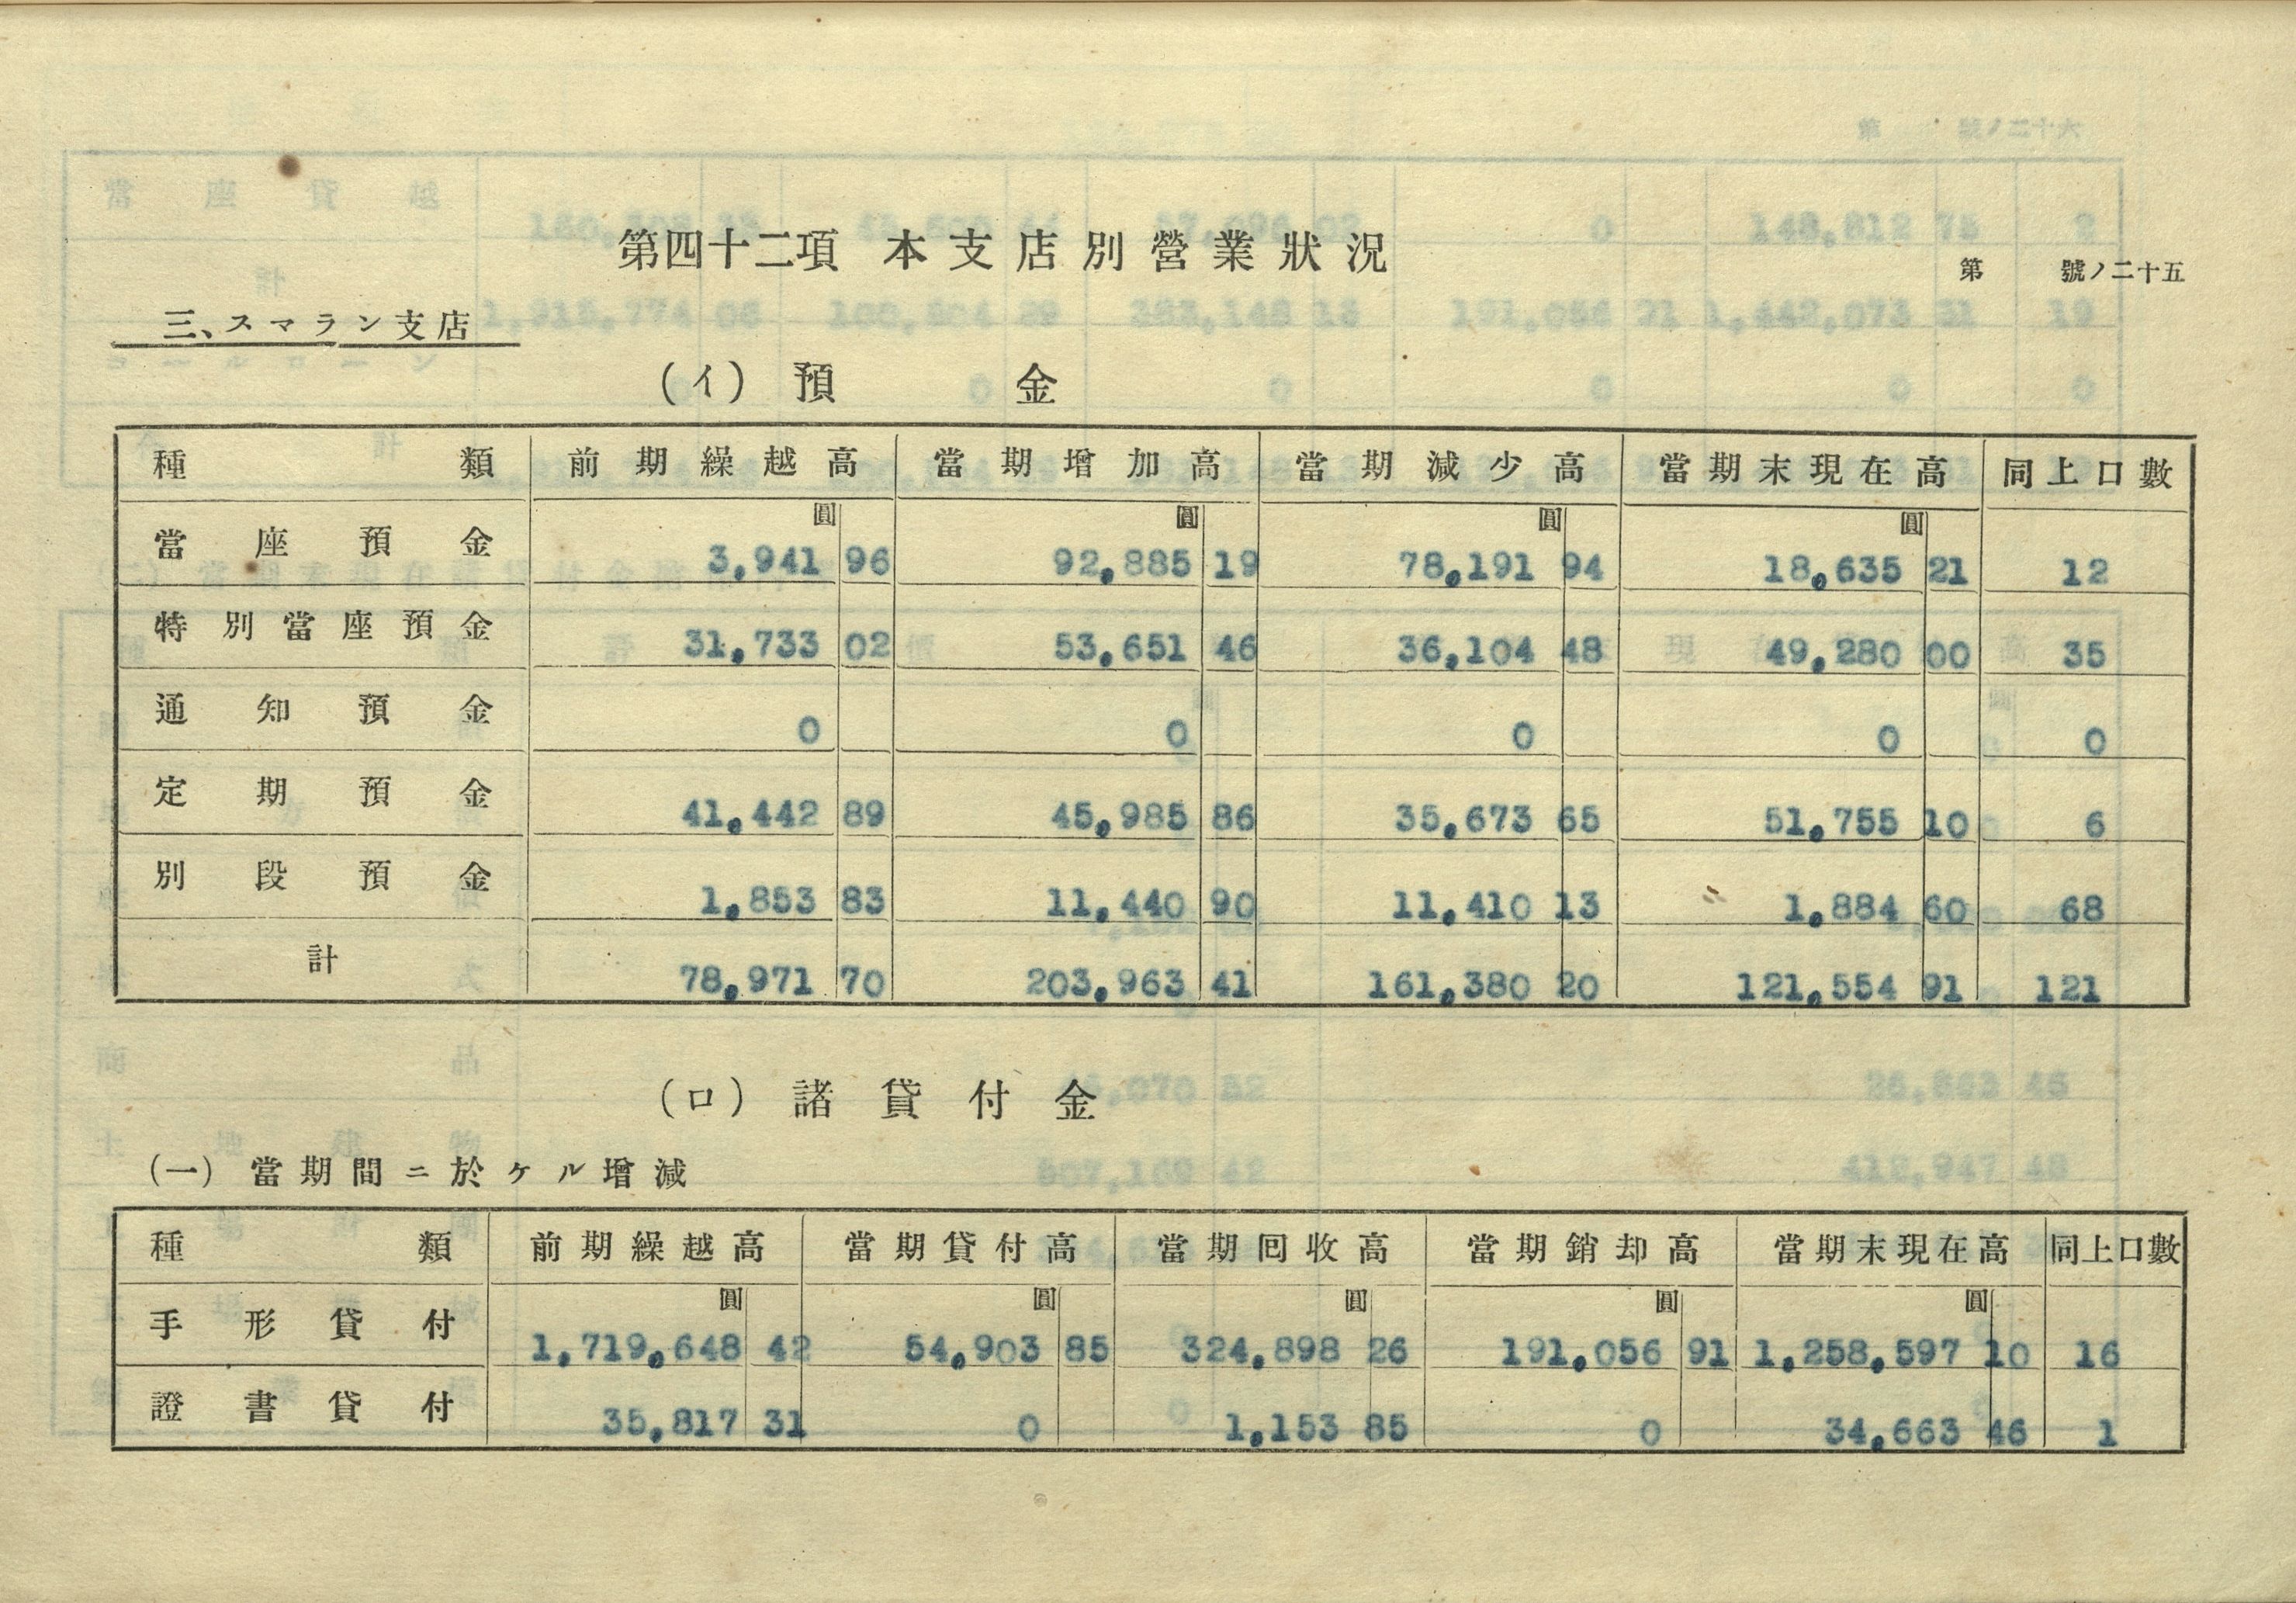 第四十二項 本支店別營業狀況
第 號ノ二十五
三、スマラン支店
(イ) 預金
種類 前期繰越高 當期增加高 當期減少高 當期末現在高 同上口數
圓 圓 圓 圓
當座預金 3,941 96 92,885 19 78,191 94 18,635 21 12
特別當座預金 31,733 02 53,651 46 36,104 48 49,280 00 35
通知預金 0 0 0 0 0
定期預金 41,442 89 45,985 86 35,673 65 51,755 10 6
別段預金 1,853 83 11,440 90 11,410 13 1,884 60 68
計 78,971 70 203,963 41 161,380 20 121,554 91 121
(ロ) 諸貸付金
(一) 當期間ニ於ケル增減
種類 前期繰越高 當期貸付高 當期回收高 當期銷却高 當期末現在高 同上口數
圓 圓 圓 圓 圓
手形貸付 1,719,648 42 54,903 85 324,898 26 191,056 91 1,258,597 10 16
證書貸付 35,817 31 0 1,153 85 0 34,663 46 1